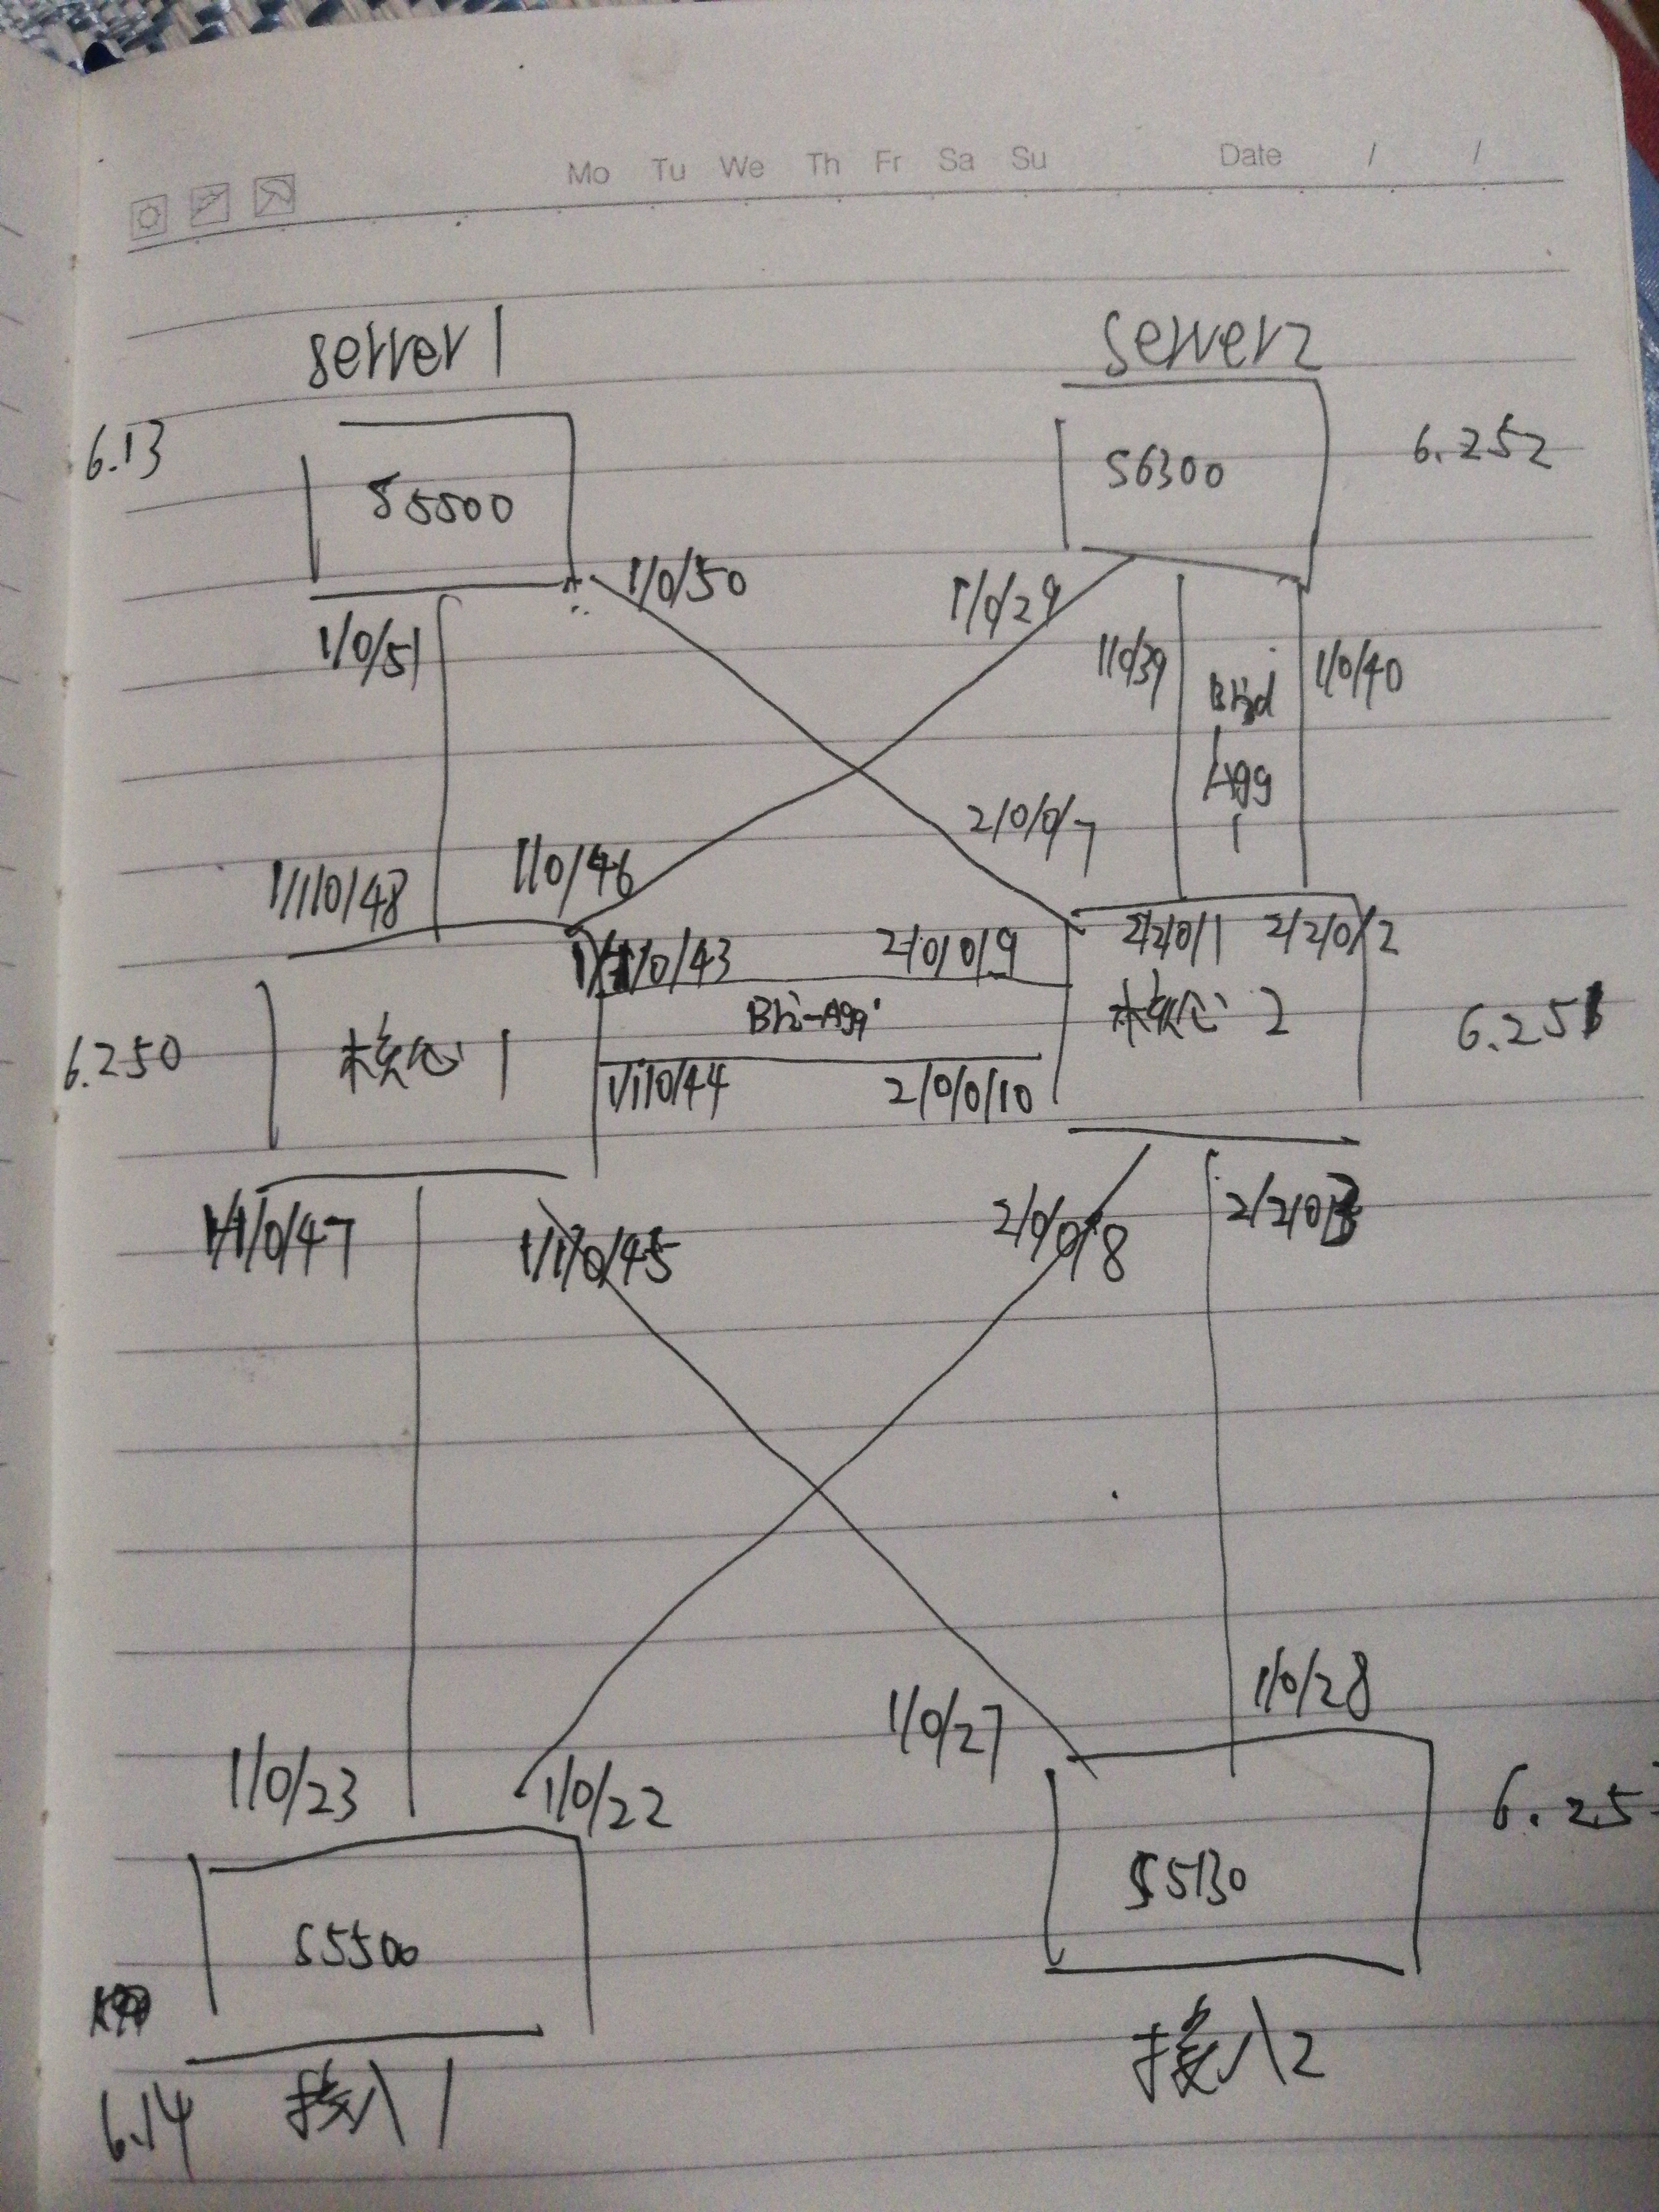 Mo Tu We Th Fr Sa Su Date / /
server1 server2
6.13 S5500 S6300 6.252
1/0/50 1/0/29
1/0/51 1/0/39 Brid 1/0/40
Agg
2/0/0/7 1
1/1/0/48 1/0/46
1/1/0/43 2/0/0/9 2/2/0/1 2/2/0/2
6.250 核心1 Bri-Agg 核心2 6.251
1/1/0/44 2/0/0/10
1/1/0/47 1/1/0/45 2/0/0/8 2/2/0/3
1/0/27 1/0/28
1/0/23 1/0/22
S5500 S5130 6.25
6.14 接入1 接入2